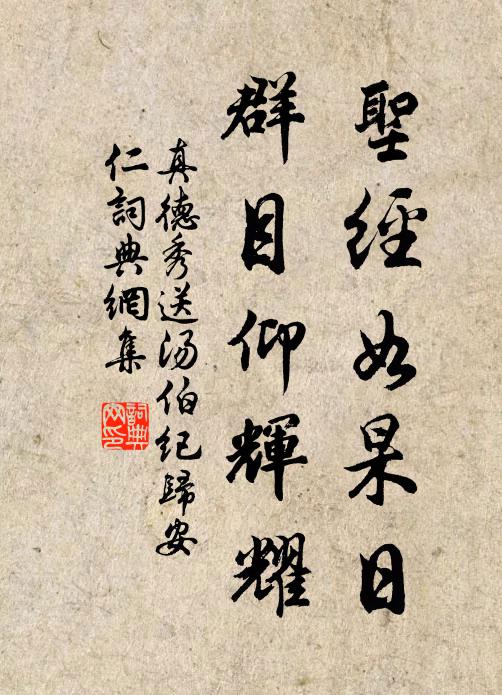 聖經如杲日
群目仰輝耀
真德秀送湯伯紀歸安
仁詞典網集
詞典網印